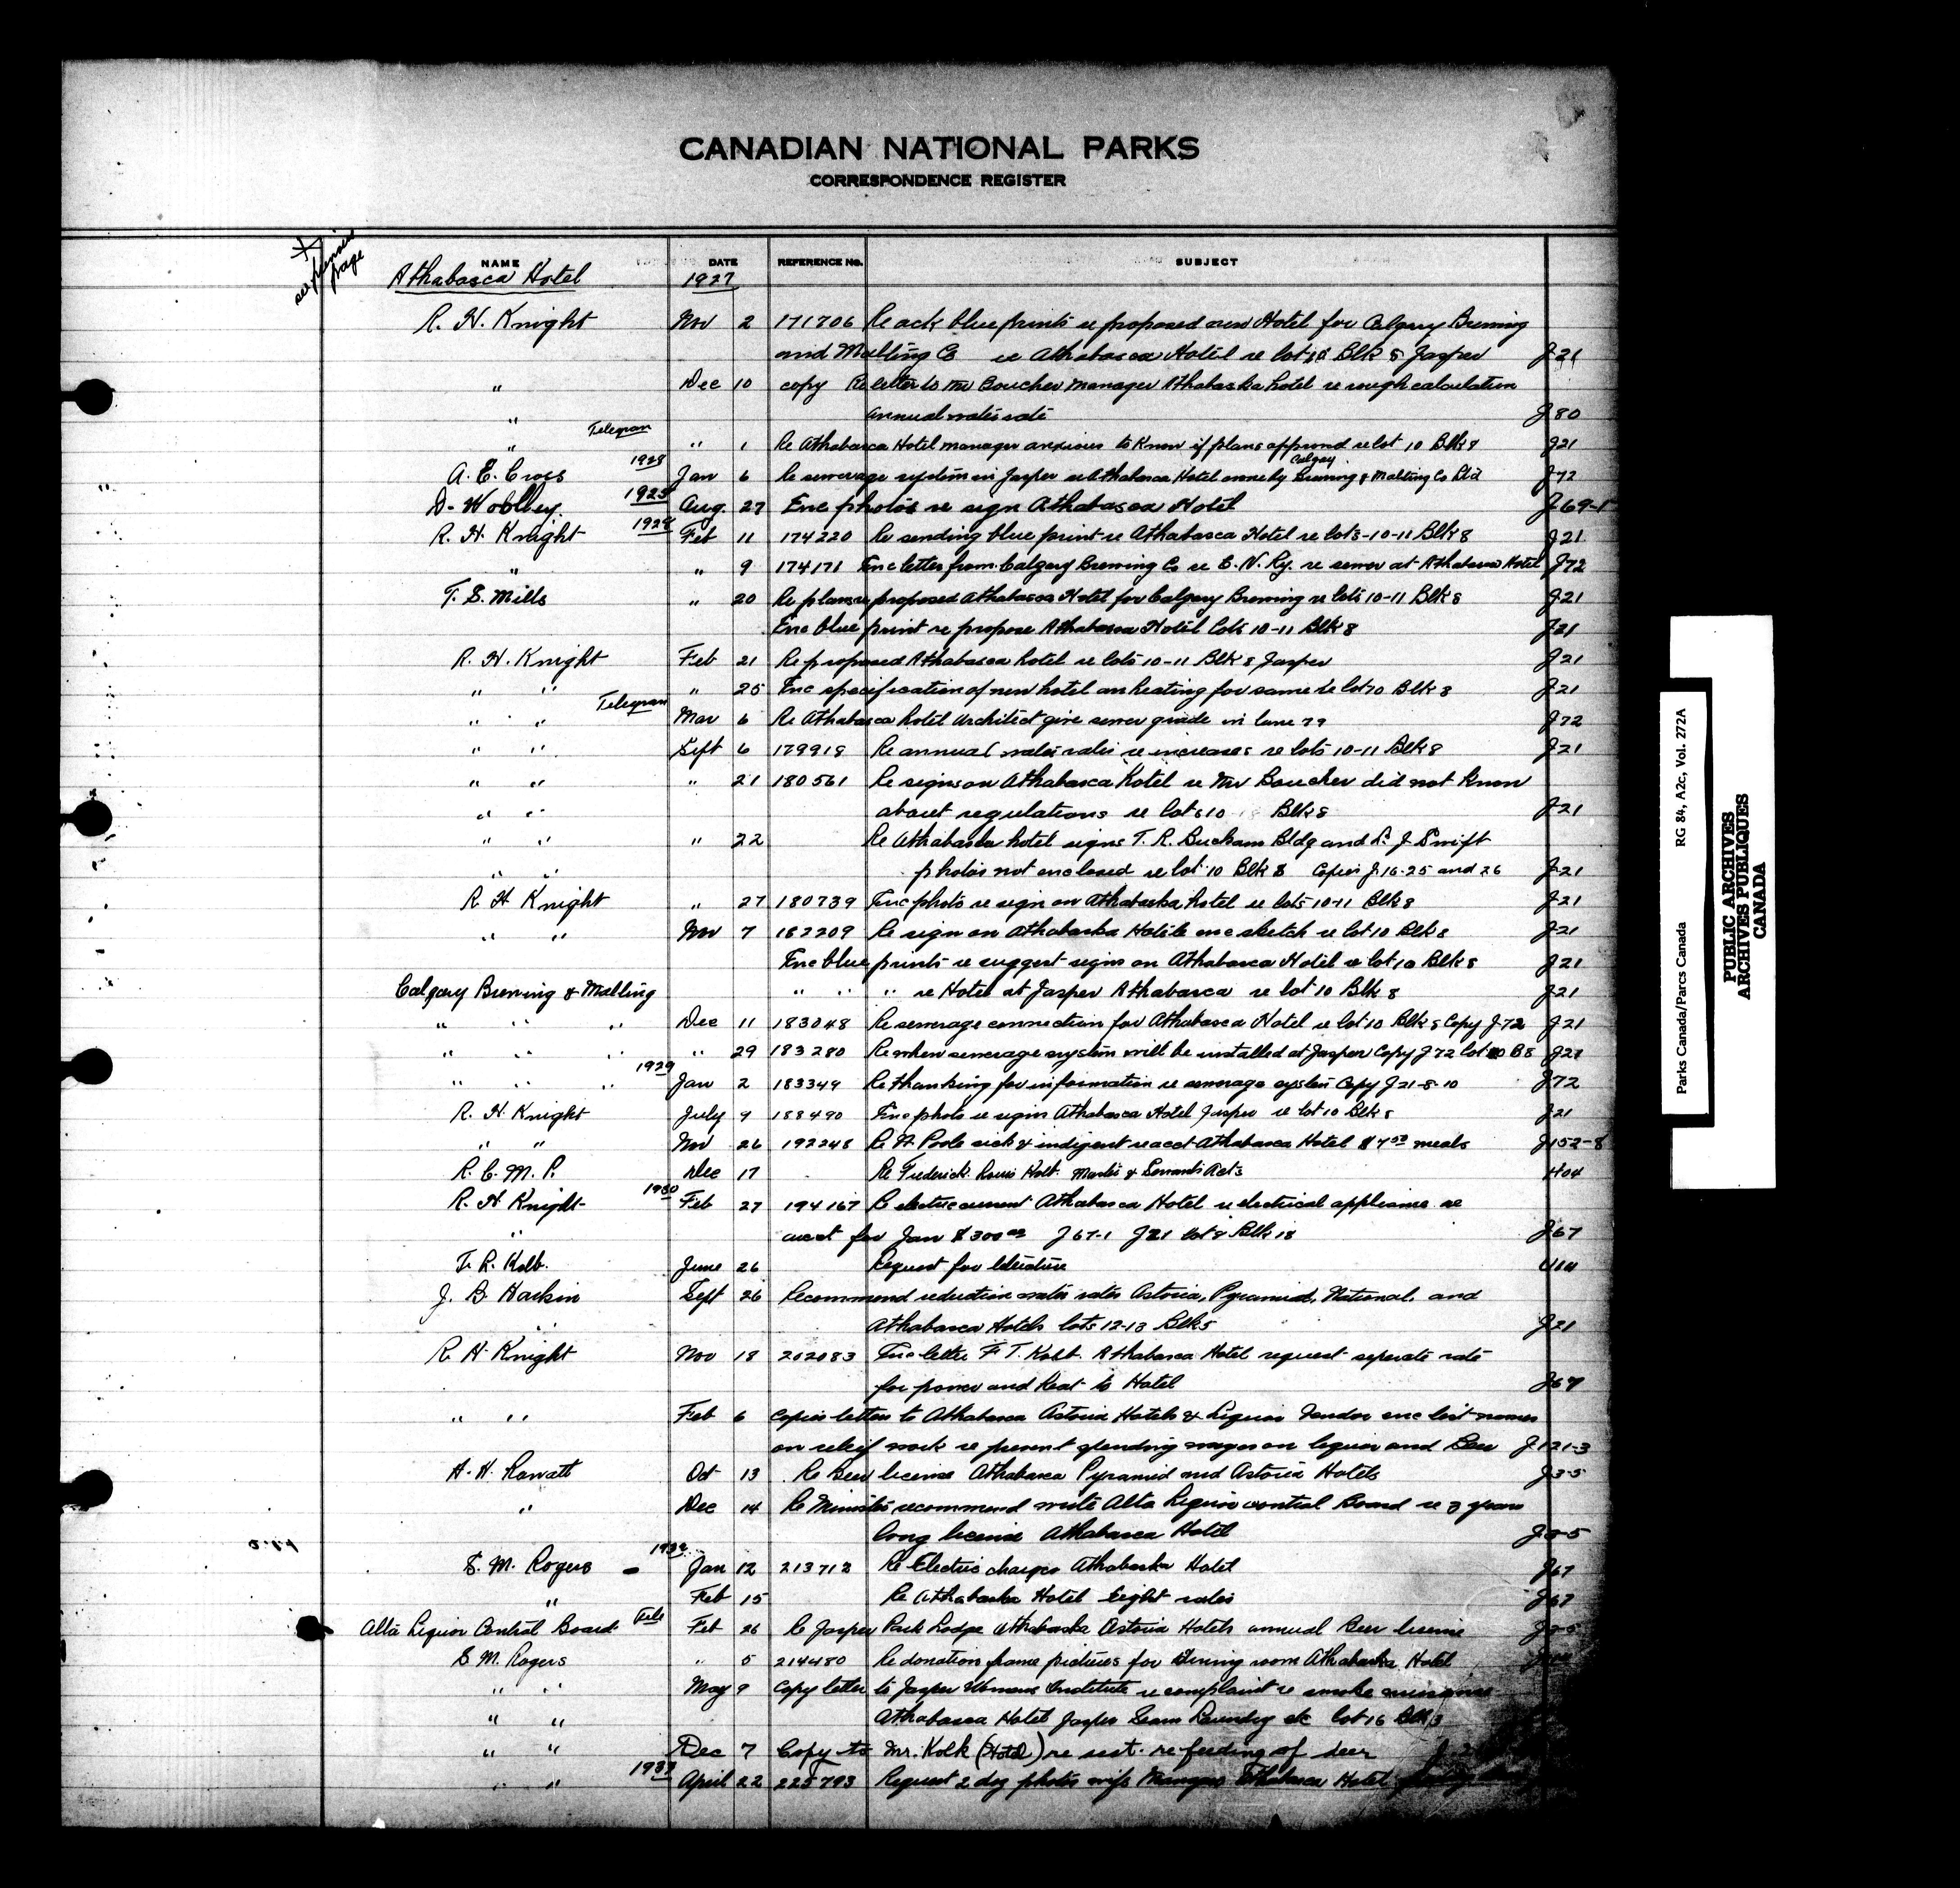 CANADIAN NATIONAL PARKS
CORRESPONDENCE REGISTER
* see previous page
NAME DATE REFERENCE No. SUBJECT
Athabasca Hotel 1927
R. H. Knight Nov 2 171706 Re ack blue prints re proposed new Hotel for Calgary Brewing
and Malting Co re Athabasca Hotel re lot 10 Blk 8 Jasper J-21
" Dec 10 copy Re letter to Mr Boucher manager Athabaska hotel re rough calculation
" annual water rate J 80
" Telegram " 1 Re Athabasca Hotel manager anxious to know if plans approved re lot 10 Blk 8 J21
A. E. Cross 1928 Jan 6 Re sewerage system in Jasper re Athabasca Hotel owne by Calgary Brewing & Malting Co Ltd J-72
D. Woolley. 1925 Aug. 27 Enc photos re sign Athabasca Hotel J 69-1
R. H. Knight 1928 Feb 11 174220 Re sending blue print re Athabasca Hotel re lots-10-11 Blk 8 J21
" " 9 174171 Enc letter from Calgary Brewing Co re C. N. Ry. re sewer at Athabasca Hotel J72
T. S. Mills " 20 Re plans re proposed Athabasca Hotel for Calgary Brewing re lots 10-11 Blk 8 J21
Enc blue print re propose Athabasca Hotel Lots 10-11 Blk 8 J21
R. H. Knight Feb 21 Re proposed Athabasca hotel re lots 10-11 Blk 8 Jasper J21
" " " 25 Enc specification of new hotel an heating for same re lot 10 Blk 8 J21
" " Telegram Mar 6 Re Athabasca hotel architect give sewer grade in lane J72
" " Sept 6 179918 Re annual water rates re increases re lots 10-11 Blk 8 J21
" " " 21 180561 Re signs on Athabasca Hotel re Mr Boucher did not know
" " about regulations re lots 10 Blk 8 J-21
" " " 22 Re Athabaska hotel signs T. R. Bucham Bldg and L. J Swift
" " photos not enclosed re lot 10 Blk 8 Copies J-16-25 and 26 J-21
R H Knight " 27 180739 Enc photo re sign on Athabaska hotel re lots 10-11 Blk 8 J-21
" " Nov 7 182209 Re sign on Athabaska Hotel enc sketch re lot 10 Blk 8 J21
Enc blue prints re suggest signs on Athabasca Hotel re lot 10 Blk 8 J21
Calgary Brewing & Malting " " " re Hotel at Jasper Athabasca re lot 10 Blk 8 J21
" " " Dec 11 183048 Re sewerage connection for Athabasca Hotel re lot 10 Blk 8 Copy J-72 J21
" " " " 29 183280 Re when sewerage system will be installed at Jasper Copy J 72 lot 10 B8 J21
" " " 1929 Jan 2 183349 Re thanking for information re sewerage system Copy J 21-8-10 J72
R. H. Knight July 9 188490 Enc photo re sign Athabasca Hotel Jasper re lot 10 Blk 8 J21
" " Nov 26 192248 Re Poole sick & indigent re acct Athabasca Hotel $7.50 meals J152-8
R. C. M. P. Dec 17 Re Frederick Louis Kolb. Master & Servants Acts H04
R. H Knight 1930 Feb 27 194167 Re electric current Athabasca Hotel re electrical appliance re
" acct for Jan $300.00 J 67-1 J21 lot 8 Blk 18 J67
F. R. Kolb. June 26 Request for literature U114
J. B. Harkin Sept 26 Recommend reduction water rates Astoria, Pyramid, National, and
" Athabasca Hotels lots 12-13 Blk 5 J21
R. H. Knight Nov 18 202083 Enc letter F T. Kolb. Athabasca Hotel request seperate rate
for power and heat to Hotel J67
" " Feb 6 copies letters to Athabasca Astoria Hotels & Liquor Vendor enc list names
on relief work re prevent spending wages on liquor and Beer J121-3
H. H. Rowatt Oct 13 Re Beer license Athabasca Pyramid and Astoria Hotels J3-5
" Dec 14 Re Minister recommend write Alta Liquor control Board re 3 years
long license Athabasca Hotel
S. M. Rogers 1932 Jan 12 213712 Re Electric charges Athabaska Hotel J67
" Feb 15 Re Athabaska Hotel Light rates J67
Alta Liquor Control Board Tele Feb 26 Re Jasper Park Lodge Athabaska Astoria Hotels annual Beer license
S. M. Rogers " 5 214480 Re donation frame pictures for Dining room Athabaska Hotel
" " May 9 Copy letter to Jasper Womens Institute re complaint re smoke nuisance
" " Athabasca Hotel Jasper Steam Laundry etc lot 16 Blk
" " Dec 7 Copy to Mr. Kolk (Hotel) re rest. re feeding of deer
" " 1933 April 22 225793 Request 2 dog photos wife Manager Athabasca Hotel
Parks Canada/Parcs Canada RG 84, A2c, Vol. 272A
PUBLIC ARCHIVES
ARCHIVES PUBLIQUES
CANADA